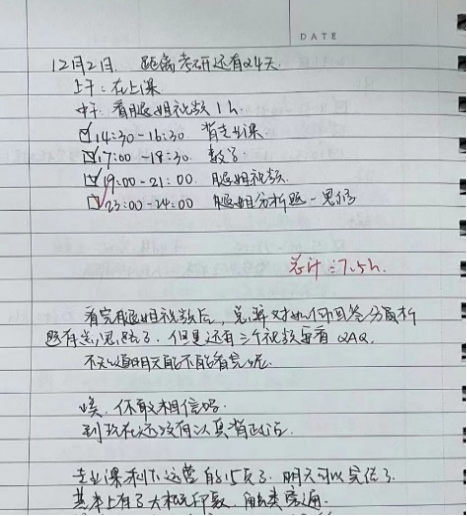 DATE
12月2日. 距离考研还有24天.
上午: 在上课
中午: 看腿姐视频 1h.
14:30-16:30 背专业课
17:00-18:30. 数学
19:00-21:00. 腿姐视频.
23:00-24:00 腿姐分析题-思修
总计:7.5h.
看完腿姐视频后, 总算对如何回答分析
题有些思路了. 但是还有三个视频每看 QAQ.
不知道明天能不能看完呢.
唉. 你敢相信吗.
到现在还没有认真背政治.
专业课剩下运营 8.5页了. 明天可以完结了.
基本上有了大概印象.